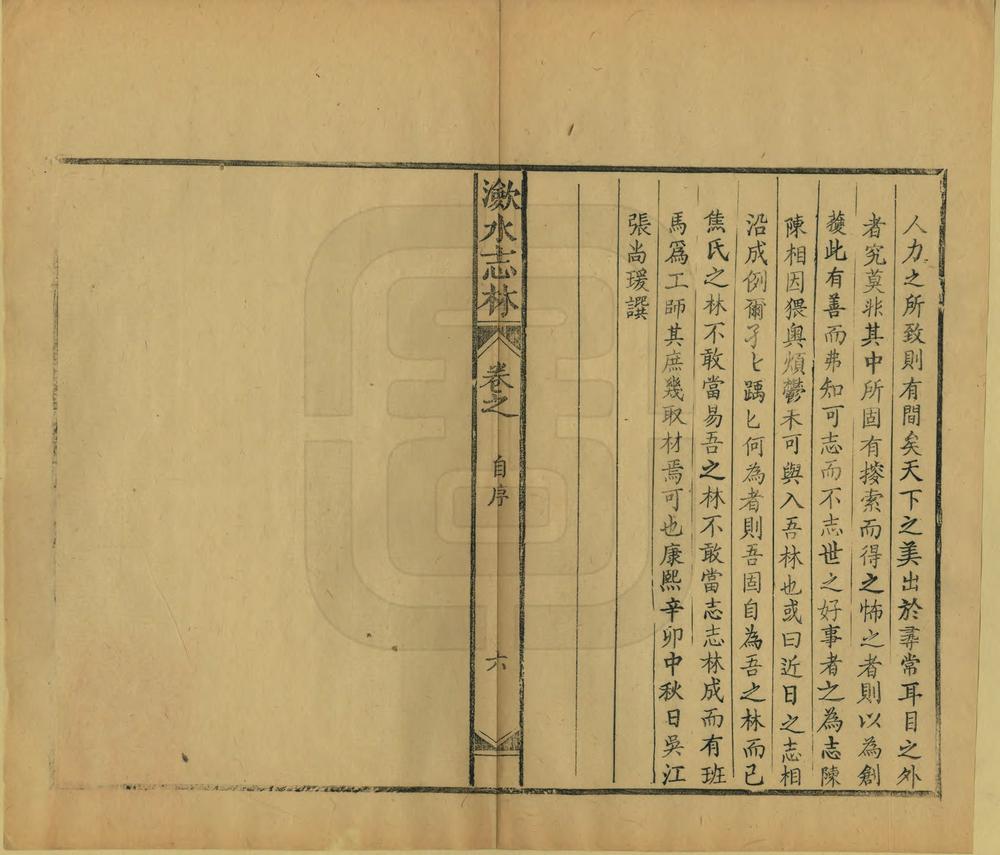 人力之所致則有間矣天下之美出於尋常耳目之外
者究莫非其中所固有搜索而得之怖之者則以為創
獲此有善而弗知可志而不志世之好事者之為志陳
陳相因猥奧煩鬱未可與入吾林也或曰近日之志相
沿成例爾孑匕踽匕何為者則吾固自為吾之林而已
焦氏之林不敢當易吾之林不敢當志志林成而有班
馬爲工師其庶幾取材焉可也康熙辛卯中秋日吳江
張尚瑗譔
瀲水志林
卷之
自序
六